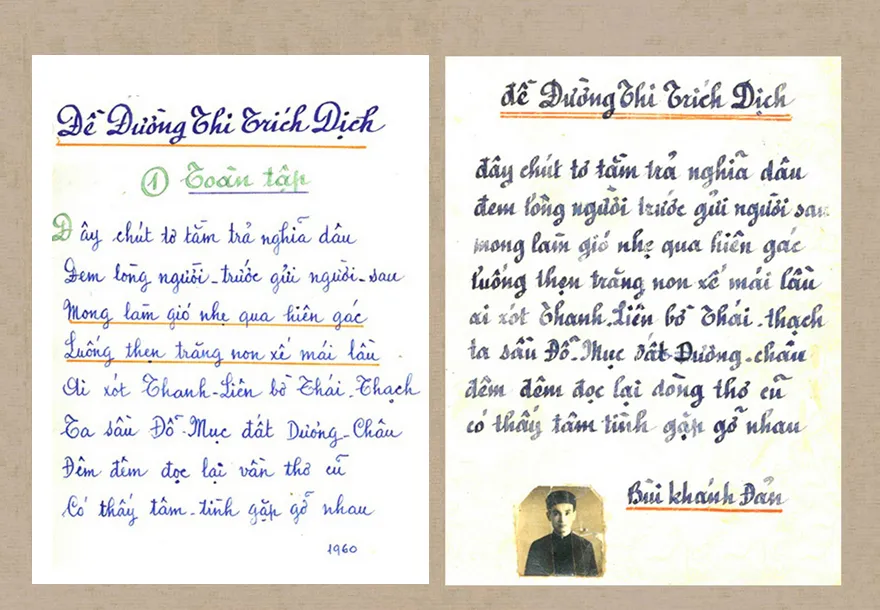 Đề Đường Thi Trích Dịch
① Toàn tập
Đây chút tơ tằm trả nghĩa dâu
Đem lòng người - trước gửi người - sau
Mong làm gió nhẹ qua hiên gác
Luống thẹn trăng non xế mái lầu
Ai xót Thanh - Liên bờ Thái - Thạch
Ta sầu Đỗ - Mục đất Dương - Châu
Đêm đêm đọc lại vần thơ cũ
Có thấy tâm - tình gặp gỡ nhau
1960
đề Đường Thi Trích Dịch
đây chút tơ tằm trả nghĩa dâu
đem lòng người trước gửi người sau
mong làm gió nhẹ qua hiên gác
luống thẹn trăng non xế mái lầu
ai xót Thanh - Liên bờ Thái - thạch
ta sầu Đỗ - Mục đất Dương - châu
đêm đêm đọc lại dòng thơ cũ
có thấy tâm tình gặp gỡ nhau
Bùi khánh Đản